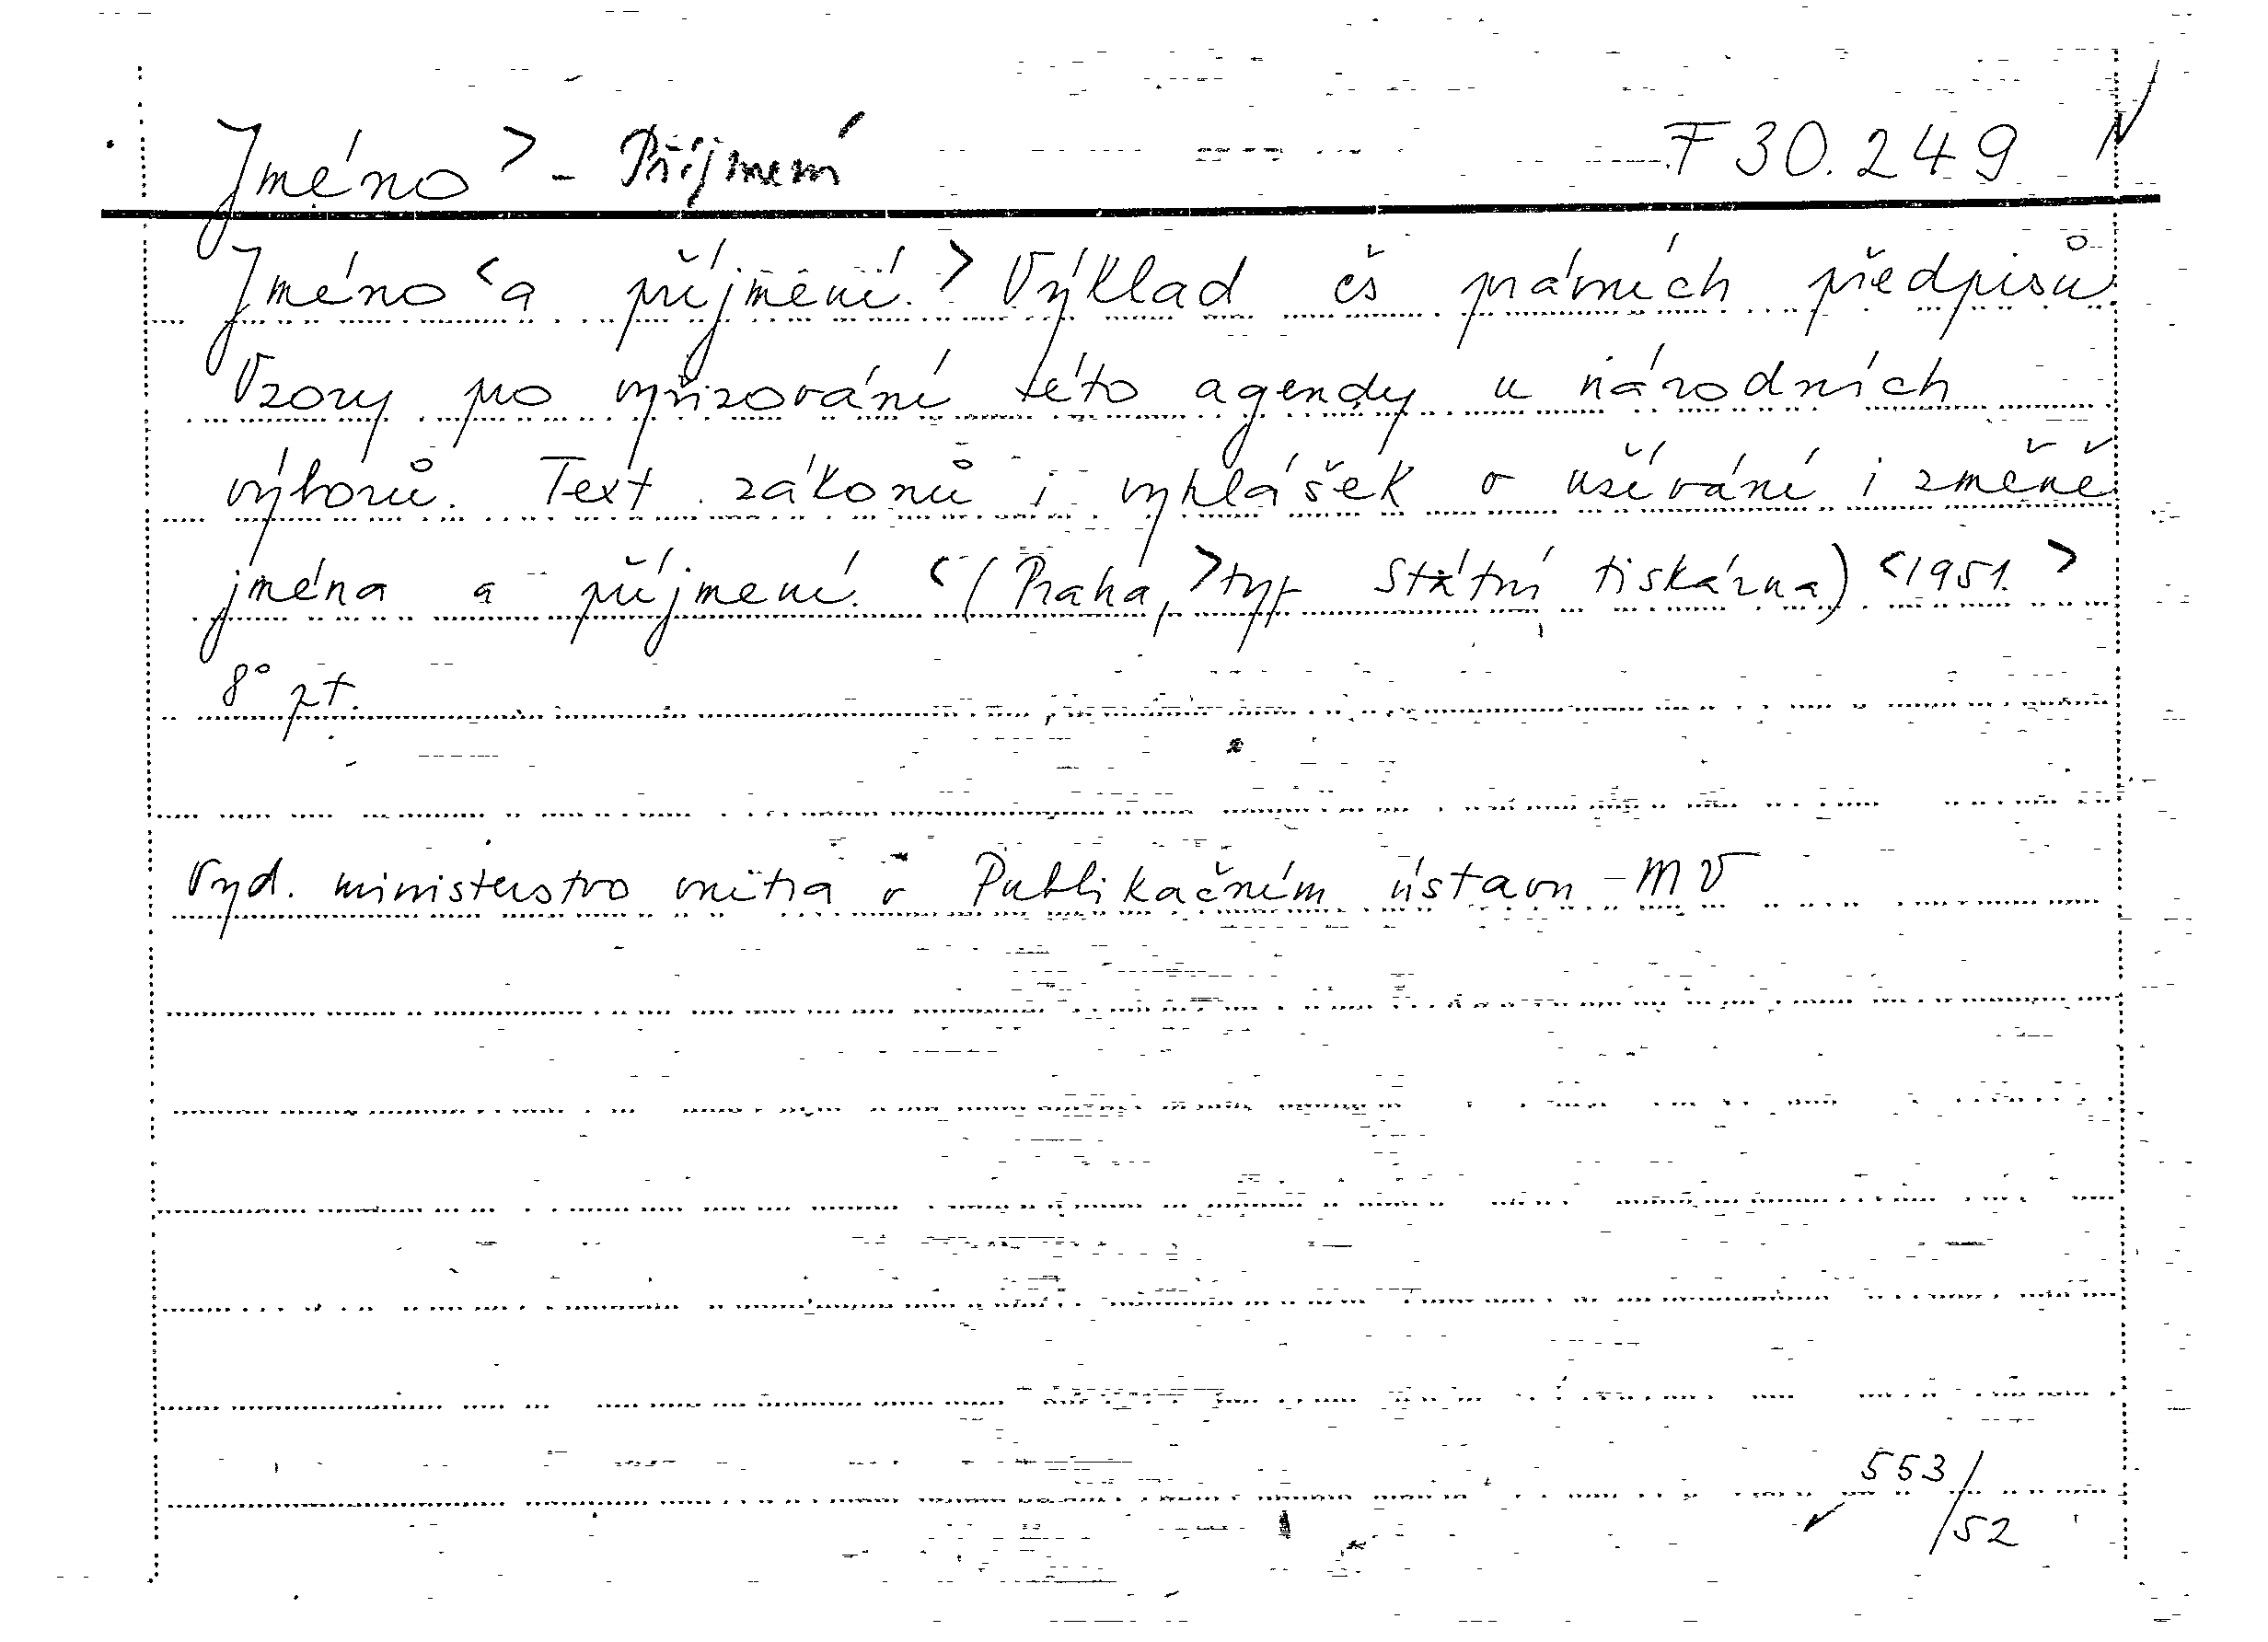 Jméno > - Příjmení F 30.249
Jméno < a příjmení. > Výklad čs právních předpisů
Vzory pro vyřizování této agendy u národních
výborů. Text zákonů i vyhlášek o užívání i změně
jména a příjmení. < (Praha, > typ Státní tiskárna) < 1951. >
8° pt.
Vyd. ministerstvo vnitra v Publikačním ústavu - MV
553/52